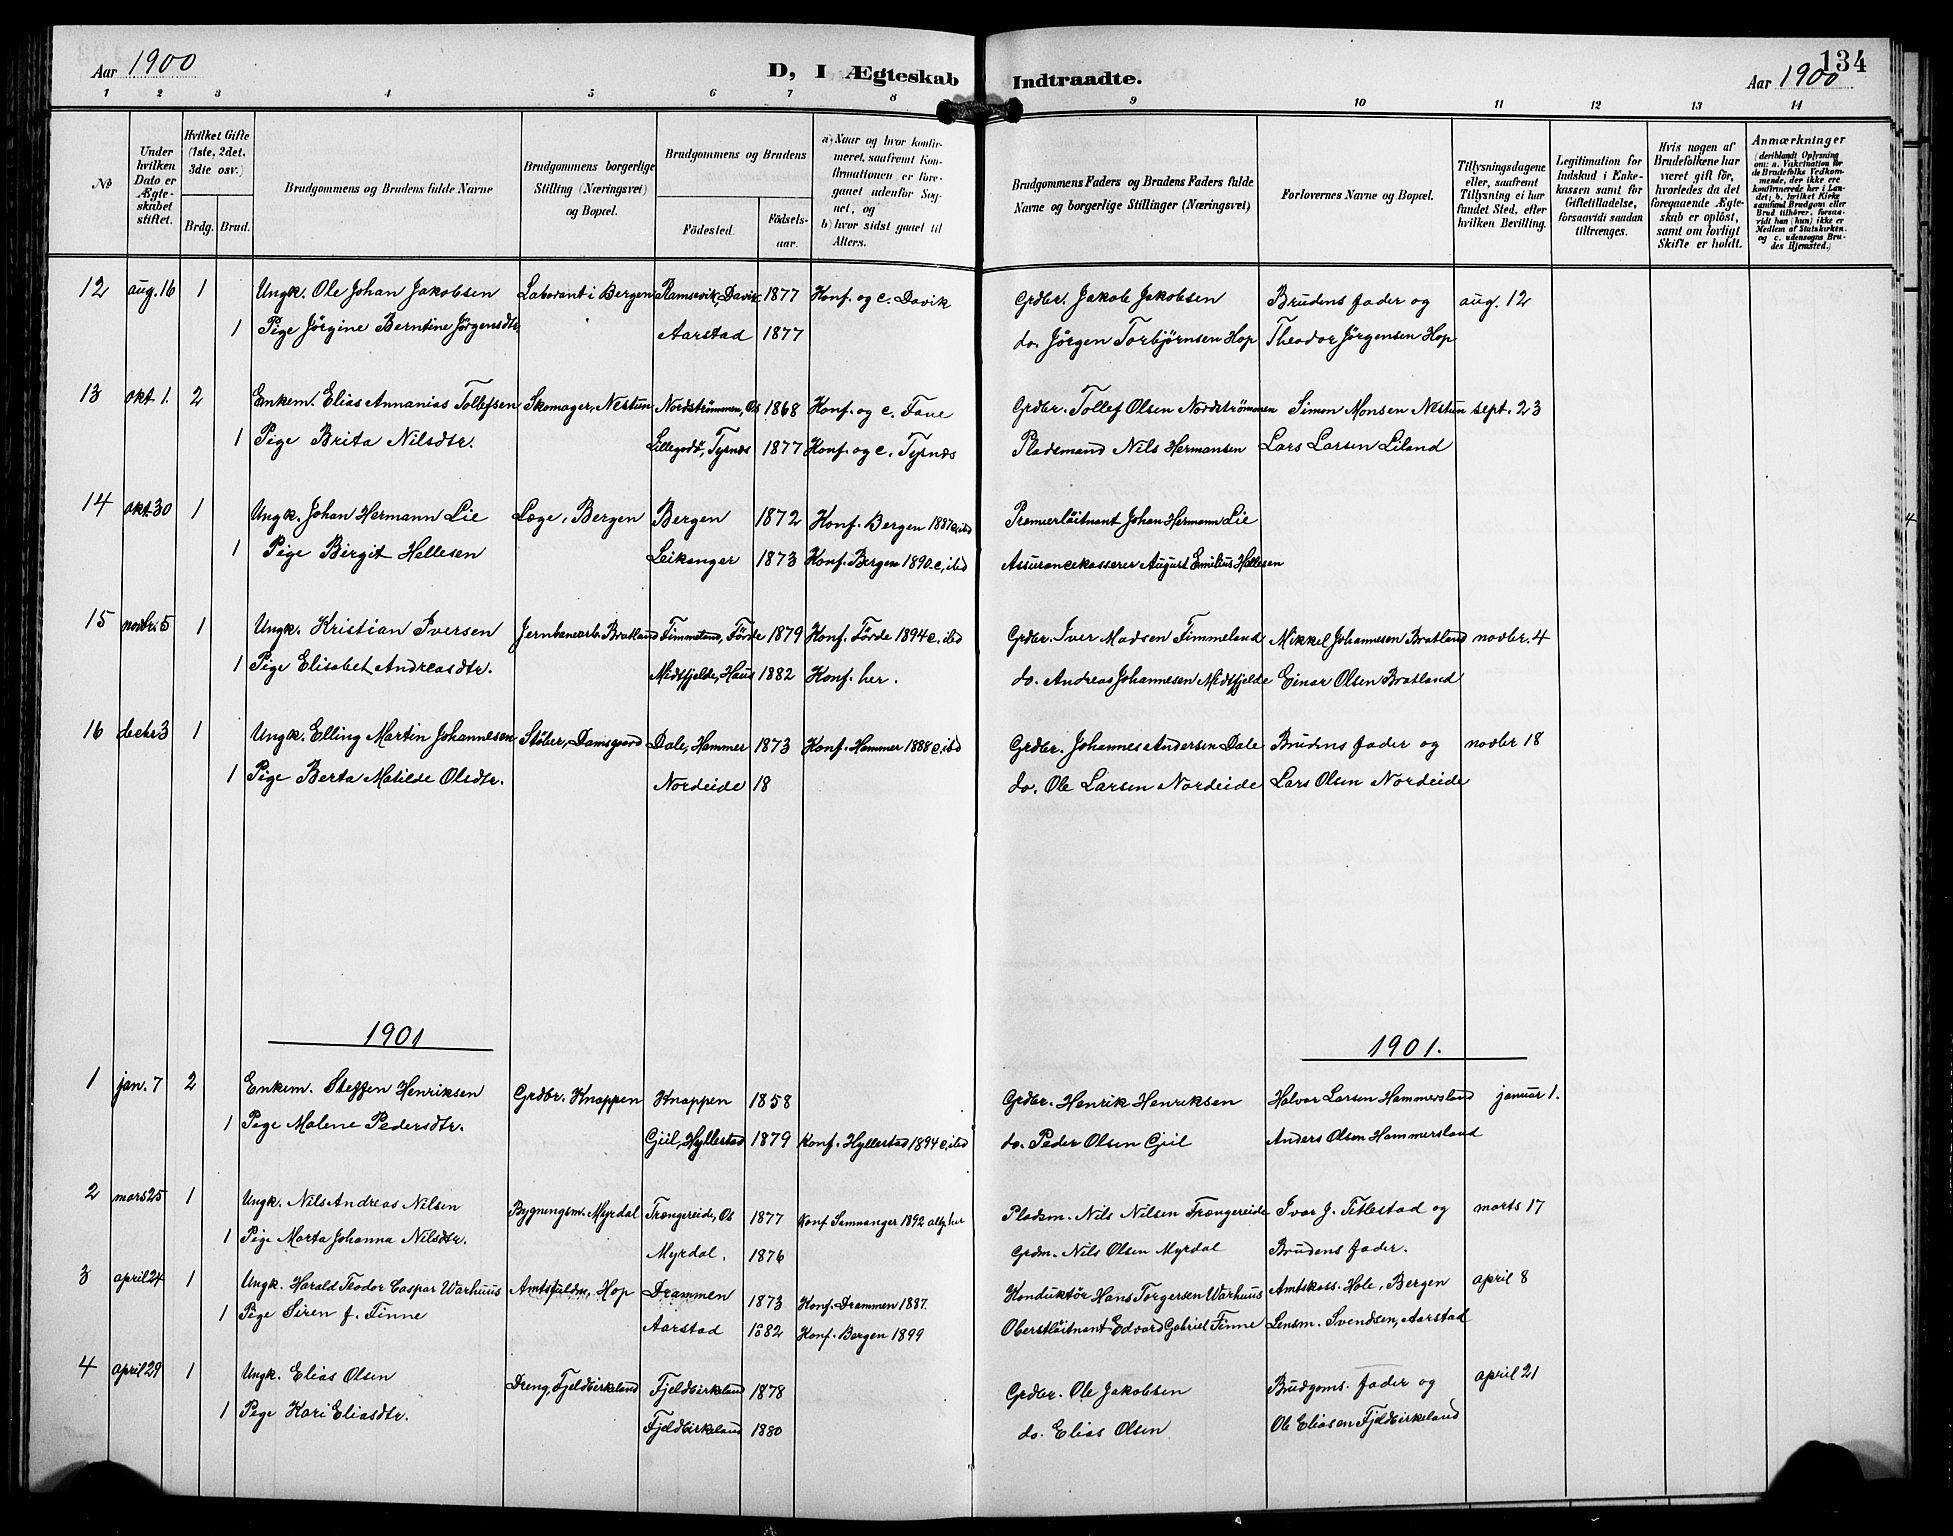 134
Aar 1900
D, I Ægteskab Indtraadte.
Aar 1900
1 2 3 4 5 6 7 8 9 10 11 12 13 14
No
Under hvilken Dato er Ægteskabet stiftet.
Hvilket Gifte (1ste, 2det, 3die osv.)
Brdg. Brud.
Brudgommens og Brudens fulde Navne
Brudgommens borgerlige Stilling (Næringsvei) og Bopæl.
Brudgommens og Brudens
Födested. Födselsaar.
a) Naar og hvor konfirmeret, saafremt Konfirmationen er foregaaet udenfor Sognet, og
b) hvor sidst gaaet til Alters.
Brudgommens Faders og Brudens Faders fulde Navne og borgerlige Stillinger (Næringsvei)
Forlovernes Navne og Bopæl.
Tillysningsdagene eller, saafremt Tillysning ei har fundet Sted, efter hvilken Bevilling.
Legitimation for Indskud i Enkekassen samt for Giftetilladelse, forsaavidt saadan tiltrænges.
Hvis nogen af Brudefolkene har været gift för, hvorledes da det foregaaende Ægteskab er oplöst, samt om lovligt Skifte er holdt.
Anmærkninger
(deriblandt Oplysning om: a. Vakcination for de Brudefolks Vedkommende, der ikke ere konfirmerede her i Landet; b. hvilket Kirkesamfund Brudgom eller Brud tilhörer, forsaavidt han (hun) ikke er Medlem af Statskirken, og c. udensogns Brudes Hjemsted.)
12 aug. 16 1 Ungk. Ole Johan Jakobsen Laborant i Bergen Ramsevik, Davik 1877 Konf. og c. Davik Grdbr. Jakob Jakobsen Brudens fader og aug. 12
1 Pige Jörgine Berntine Jörgensdtr. Aarstad 1877 do. Jörgen Torbjörnsen Hop Theodor Jörgensen Hop
13 okt. 1. 2 Enkem. Elias Annanias Tollefsen Skomager, Nestun Nordstrømmen, Os 1868 Konf. og c. Fane Grdbr. Tollef Olsen Nordströmmen Simon Monsen Nestun sept. 23
1 Pige Brita Nilsdtr. Lillegodö, Tysnæs 1877 Konf. og c. Tysnæs Pladsmand Nils Hermansen Lars Larsen Liland
14 okt. 30 1 Ungk. Johan Hermann Lie Læge, Bergen Bergen 1872 Konf. Bergen 1887 c, ibd Premierlöitnant Johan Hermann Lie
1 Pige Birgit Hellesen Leikanger 1873 Konf. Bergen 1890. c, ibd Assurancekasserer August Emilius Hellesen
15 novbr. 5 1 Ungk. Kristian Iversen Jernbanearb. Bratland Fimmeland, Förde 1879 Konf. Förde 1894 c. ibd Grdbr. Iver Madsen Fimmeland Mikkel Johannesen Bratland novbr. 4
1 Pige Elisabet Andreasdtr. Midtfjelde, Haus 1882 Konf. her. do. Andreas Johannesen Midtfjelde Einar Olsen Bratland
16 decbr 3 1 Ungk. Elling Martin Johannesen Støber, Damsgaard Dale, Hammer 1873 Konf. Hammer 1888 c, ibd Grdbr. Johannes Andersen Dale Brudens fader og novbr 18
1 Pige Berta Matilde Olsdtr. Nordeide 18 do. Ole Larsen Nordeide Lars Olsen Nordeide
1901 1901.
1 jan. 7 2 Enkem. Steffen Henriksen Grdbr. Knappen Knappen 1858 Grdbr. Henrik Henriksen Halvor Larsen Hammersland januar 1.
1 Pige Malene Pedersdtr. Gjil, Hyllestad 1879 Konf. Hyllestad 1894 c, ibd do. Peder Olsen Gjil Anders Olsen Hammersland
2 mars 25 1 Ungk. Nils Andreas Nilsen Bygningsm. Myrdal Trængereide, Os 1877 Konf Samnanger 1892 her Pladsm. Nils Nilsen Trængereide Ivar J. Titlestad og marts 17
1 Pige Marta Johanna Nilsdtr. Myrdal. 1876 Grdm. Nils Olsen Myrdal Brudens fader.
3 april 24 1 Ungk. Harald Teodor Caspar Warhuus Amtsfuldm, Hop Drammen 1873 Konf. Drammen 1887. Konduktör Hans Torgersen Warhuus Amtskass. Hole, Bergen april 8
1 Pige Siren f. Finne Aarstad 1882 Konf. Bergen 1899 Oberstlöitnant Edvard Gabriel Finne Lensm. Svendsen, Aarstad
4 april 29 1 Ungk. Elias Olsen Dreng, Fjeldbirkeland Fjeldbirkeland 1878 Grdbr. Ole Jakobsen Brudgoms. fader og april 21
1 Pige Kari Eliasdtr. Fjeldbirkeland 1880 do. Elias Olsen Ole Eliasen Fjeldbirkeland